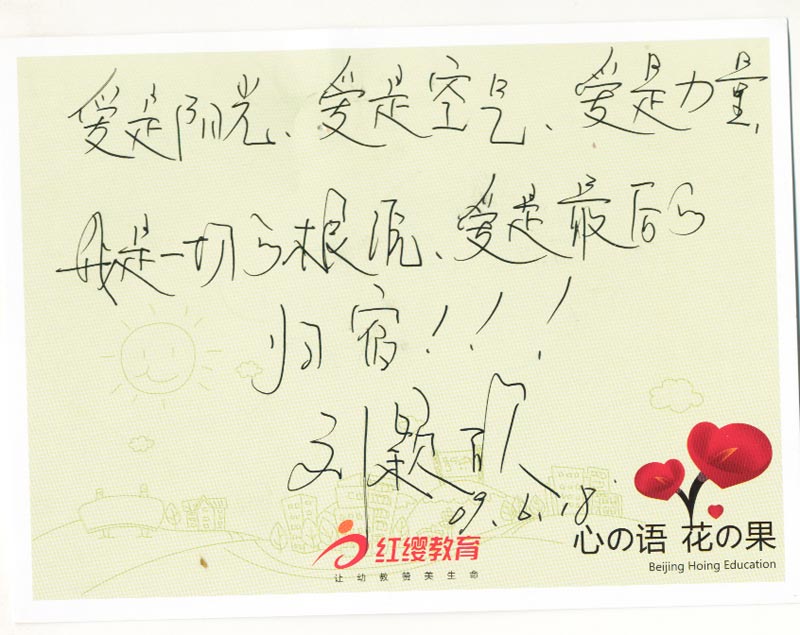 爱是阳光、爱是空气、爱是力量，
我是一切的根源、爱是最后的
归宿！！！
刘颖
09.6.18
红缨教育
让幼教赞美生命
心の语 花の果
Beijing Hoing Education